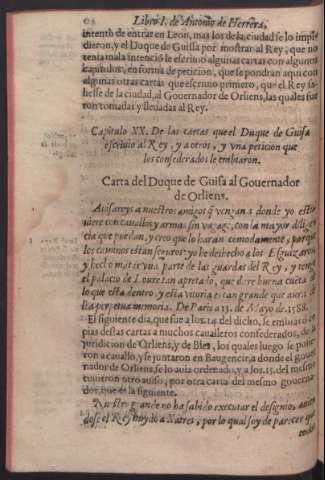 Libro I. de Antonio de Herrera.
intento de entrar en Leon, mas los de la ciudad se lo impi
dieron, y el Duque de Guisa por mostrar al Rey, que no
tenia mala intenció le escriuio algunas cartas con algunos
capitulos, en forma de peticion, que se pondran aqui con
algunas otras cartas que escriuio primero, que el Rey sa-
liesse de la ciudad, al Gouernador de Orliens, las quales fue
ron tomadas y lleuadas al Rey.
Capitulo XX. De las cartas que el Duque de Guisa
escriuio al Rey, y a otros, y vna peticion que
los confederados le embiaron.
Carta del Duque de Guisa al Gouernador
de Orliens.
Auisareys a nuestros amigos q̃ vengan a donde yo estu
uiere con cauallos y armas sin vagage, con la mayor dilig
cia que puedan, y creo que lo haran comodamente, porque
los caminos estan seguros: yo he deshecho a los Esguizaros,
y hecho matar vna parte de las guardas del Rey, y tengo
el palacio de Loure tan apretado, que dare buena cueta d
lo que esta dentro, y esta vitoria es tan grande que aura de
lla perpetua memoria. De Paris a 13. de Mayo de 1588.
El siguiente dia, que fue a los 14. del dicho, se embiaró co
pias destas cartas a muchos caualleros confederados, de la
juridicion de Orliens, y de Bles, los quales luego se pusie
ron a cauallo, y se juntaron en Baugencia, donde el gouer
nador de Orliens, se lo auia ordenado, y a los 15. del mesmo
tuuieron otro auiso, por otra carta del mesmo gouerna-
dor, que es la siguiente.
Nuestro grande no ha sabido executar el designio,
dose el Rey huydo a Xatres, por lo qual soy de parecer que